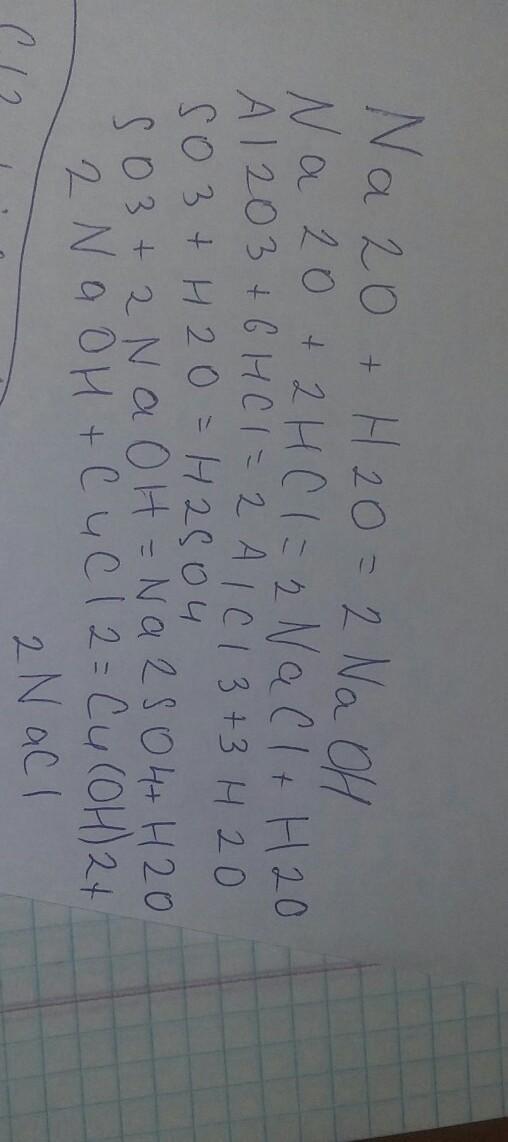 Na2O + H2O = 2NaOH
Na2O + 2HCl = 2NaCl + H2O
Al2O3 + 6HCl = 2AlCl3 + 3H2O
SO3 + H2O = H2SO4
SO3 + 2NaOH = Na2SO4 + H2O
2NaOH + CuCl2 = Cu(OH)2 +
2NaCl